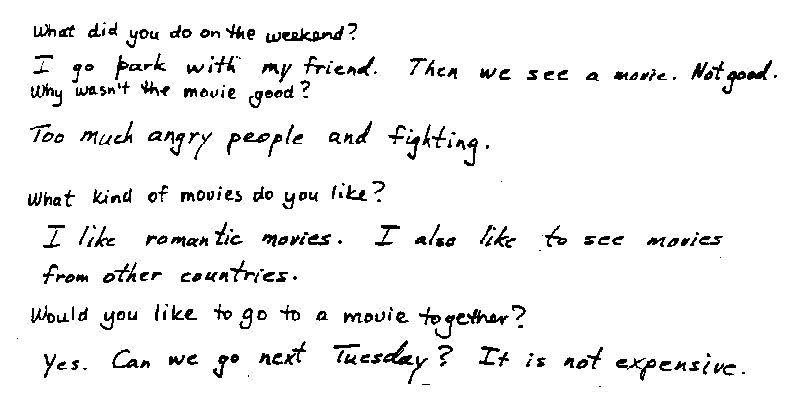 What did you do on the weekend?
I go park with my friend. Then we see a movie. Not good.
Why wasn't the movie good?
Too much angry people and fighting.
What kind of movies do you like?
I like romantic movies. I also like to see movies
from other countries.
Would you like to go to a movie together?
Yes. Can we go next Tuesday? It is not expensive.